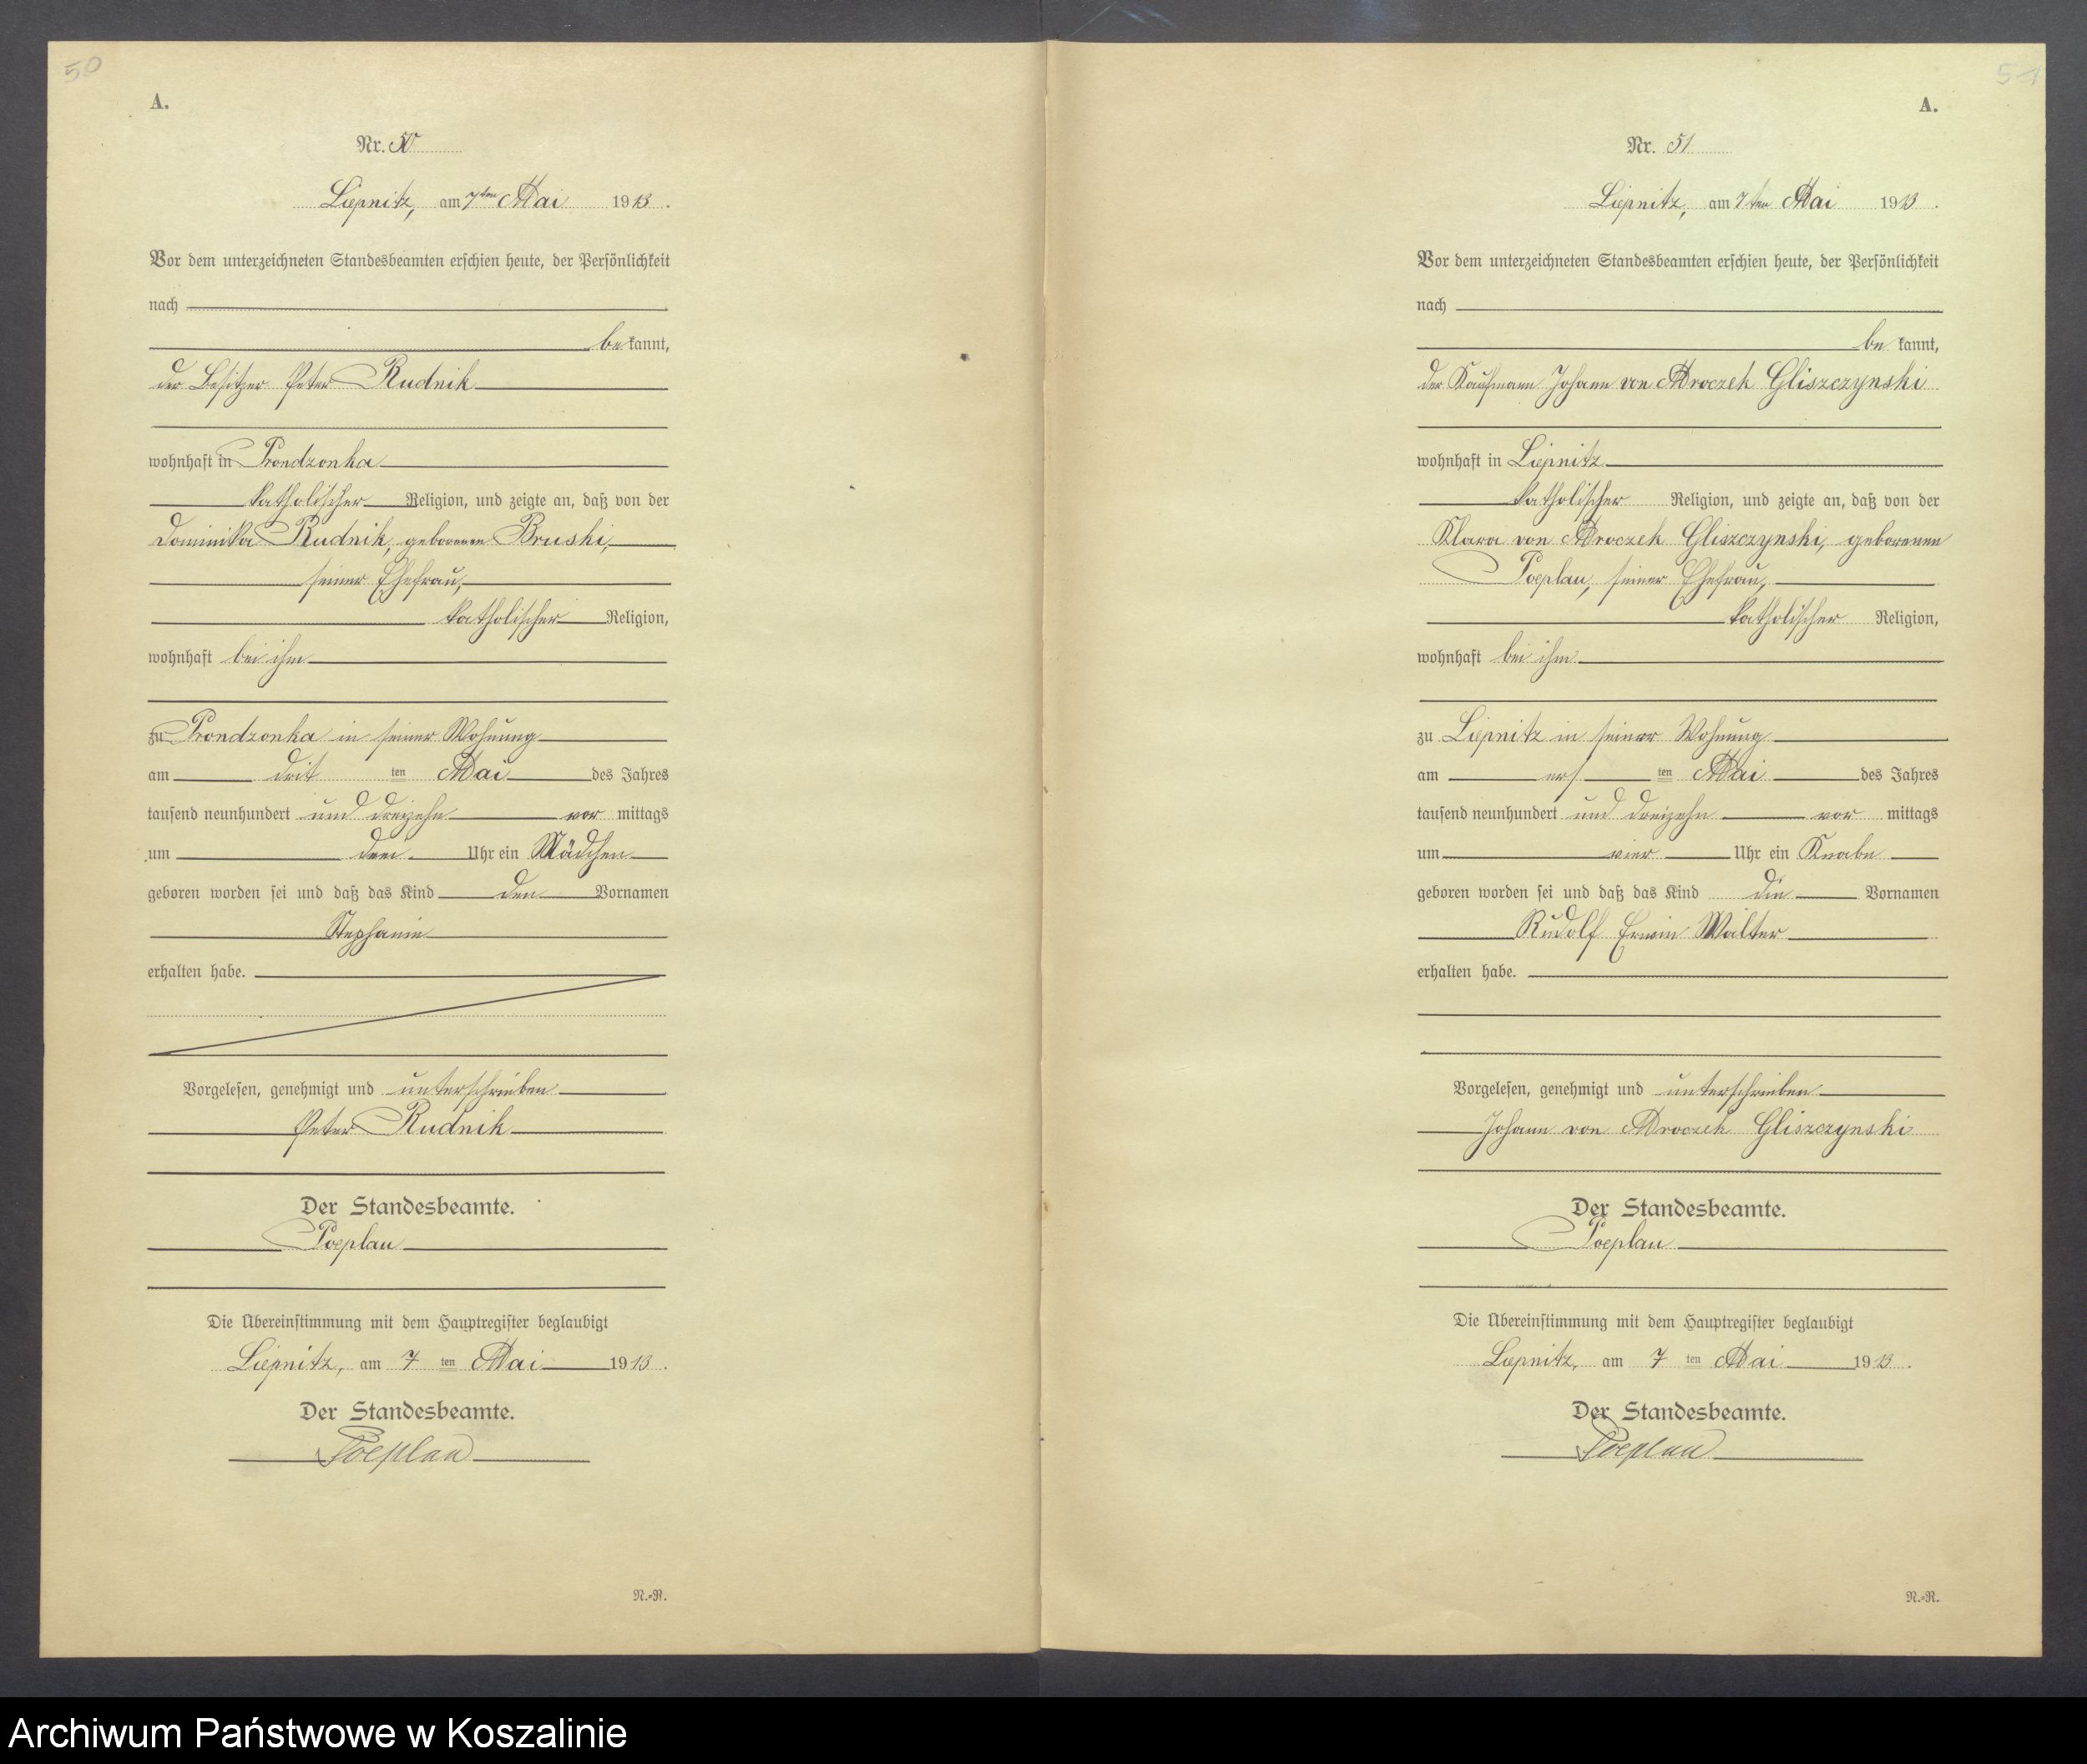 50
A.
Nr. 50
Liepnitz, am 7ten Mai 1913.
Vor dem unterzeichneten Standesbeamten erschien heute, der Persönlichkeit
nach
bekannt,
der Besitzer Peter Rudnik
wohnhaft in Prondzonka
katholischer Religion, und zeigte an, daß von der
Dominika Rudnik, geborenen Bruski,
seiner Ehefrau,
katholischer Religion,
wohnhaft bei ihm
zu Prondzonka in seiner Wohnung
am dritten Mai des Jahres
tausend neunhundert und dreizehn vormittags
um drei Uhr ein Mädchen
geboren worden sei und daß das Kind den Vornamen
Stephanie
erhalten habe.
Vorgelesen, genehmigt und unterschrieben
Peter Rudnik
Der Standesbeamte.
Poeplau
Die Übereinstimmung mit dem Hauptregister beglaubigt
Liepnitz, am 7ten Mai 1913.
Der Standesbeamte.
Poeplau
N.=R.
51
A.
Nr. 51
Liepnitz, am 7ten Mai 1913.
Vor dem unterzeichneten Standesbeamten erschien heute, der Persönlichkeit
nach
bekannt,
der Kaufmann Johann von Mroczek Gliszczynski
wohnhaft in Liepnitz
katholischer Religion, und zeigte an, daß von der
Klara von Mroczek Gliszczynski, geborenen
Poeplau, seiner Ehefrau,
katholischer Religion,
wohnhaft bei ihm
zu Liepnitz in seiner Wohnung
am ersten Mai des Jahres
tausend neunhundert und dreizehn vormittags
um vier Uhr ein Knabe
geboren worden sei und daß das Kind die Vornamen
Rudolf Erwin Walter
erhalten habe.
Vorgelesen, genehmigt und unterschrieben
Johann von Mroczek Gliszczynski
Der Standesbeamte.
Poeplau
Die Übereinstimmung mit dem Hauptregister beglaubigt
Liepnitz, am 7ten Mai 1913.
Der Standesbeamte.
Poeplau
N.=R.
Archiwum Państwowe w Koszalinie